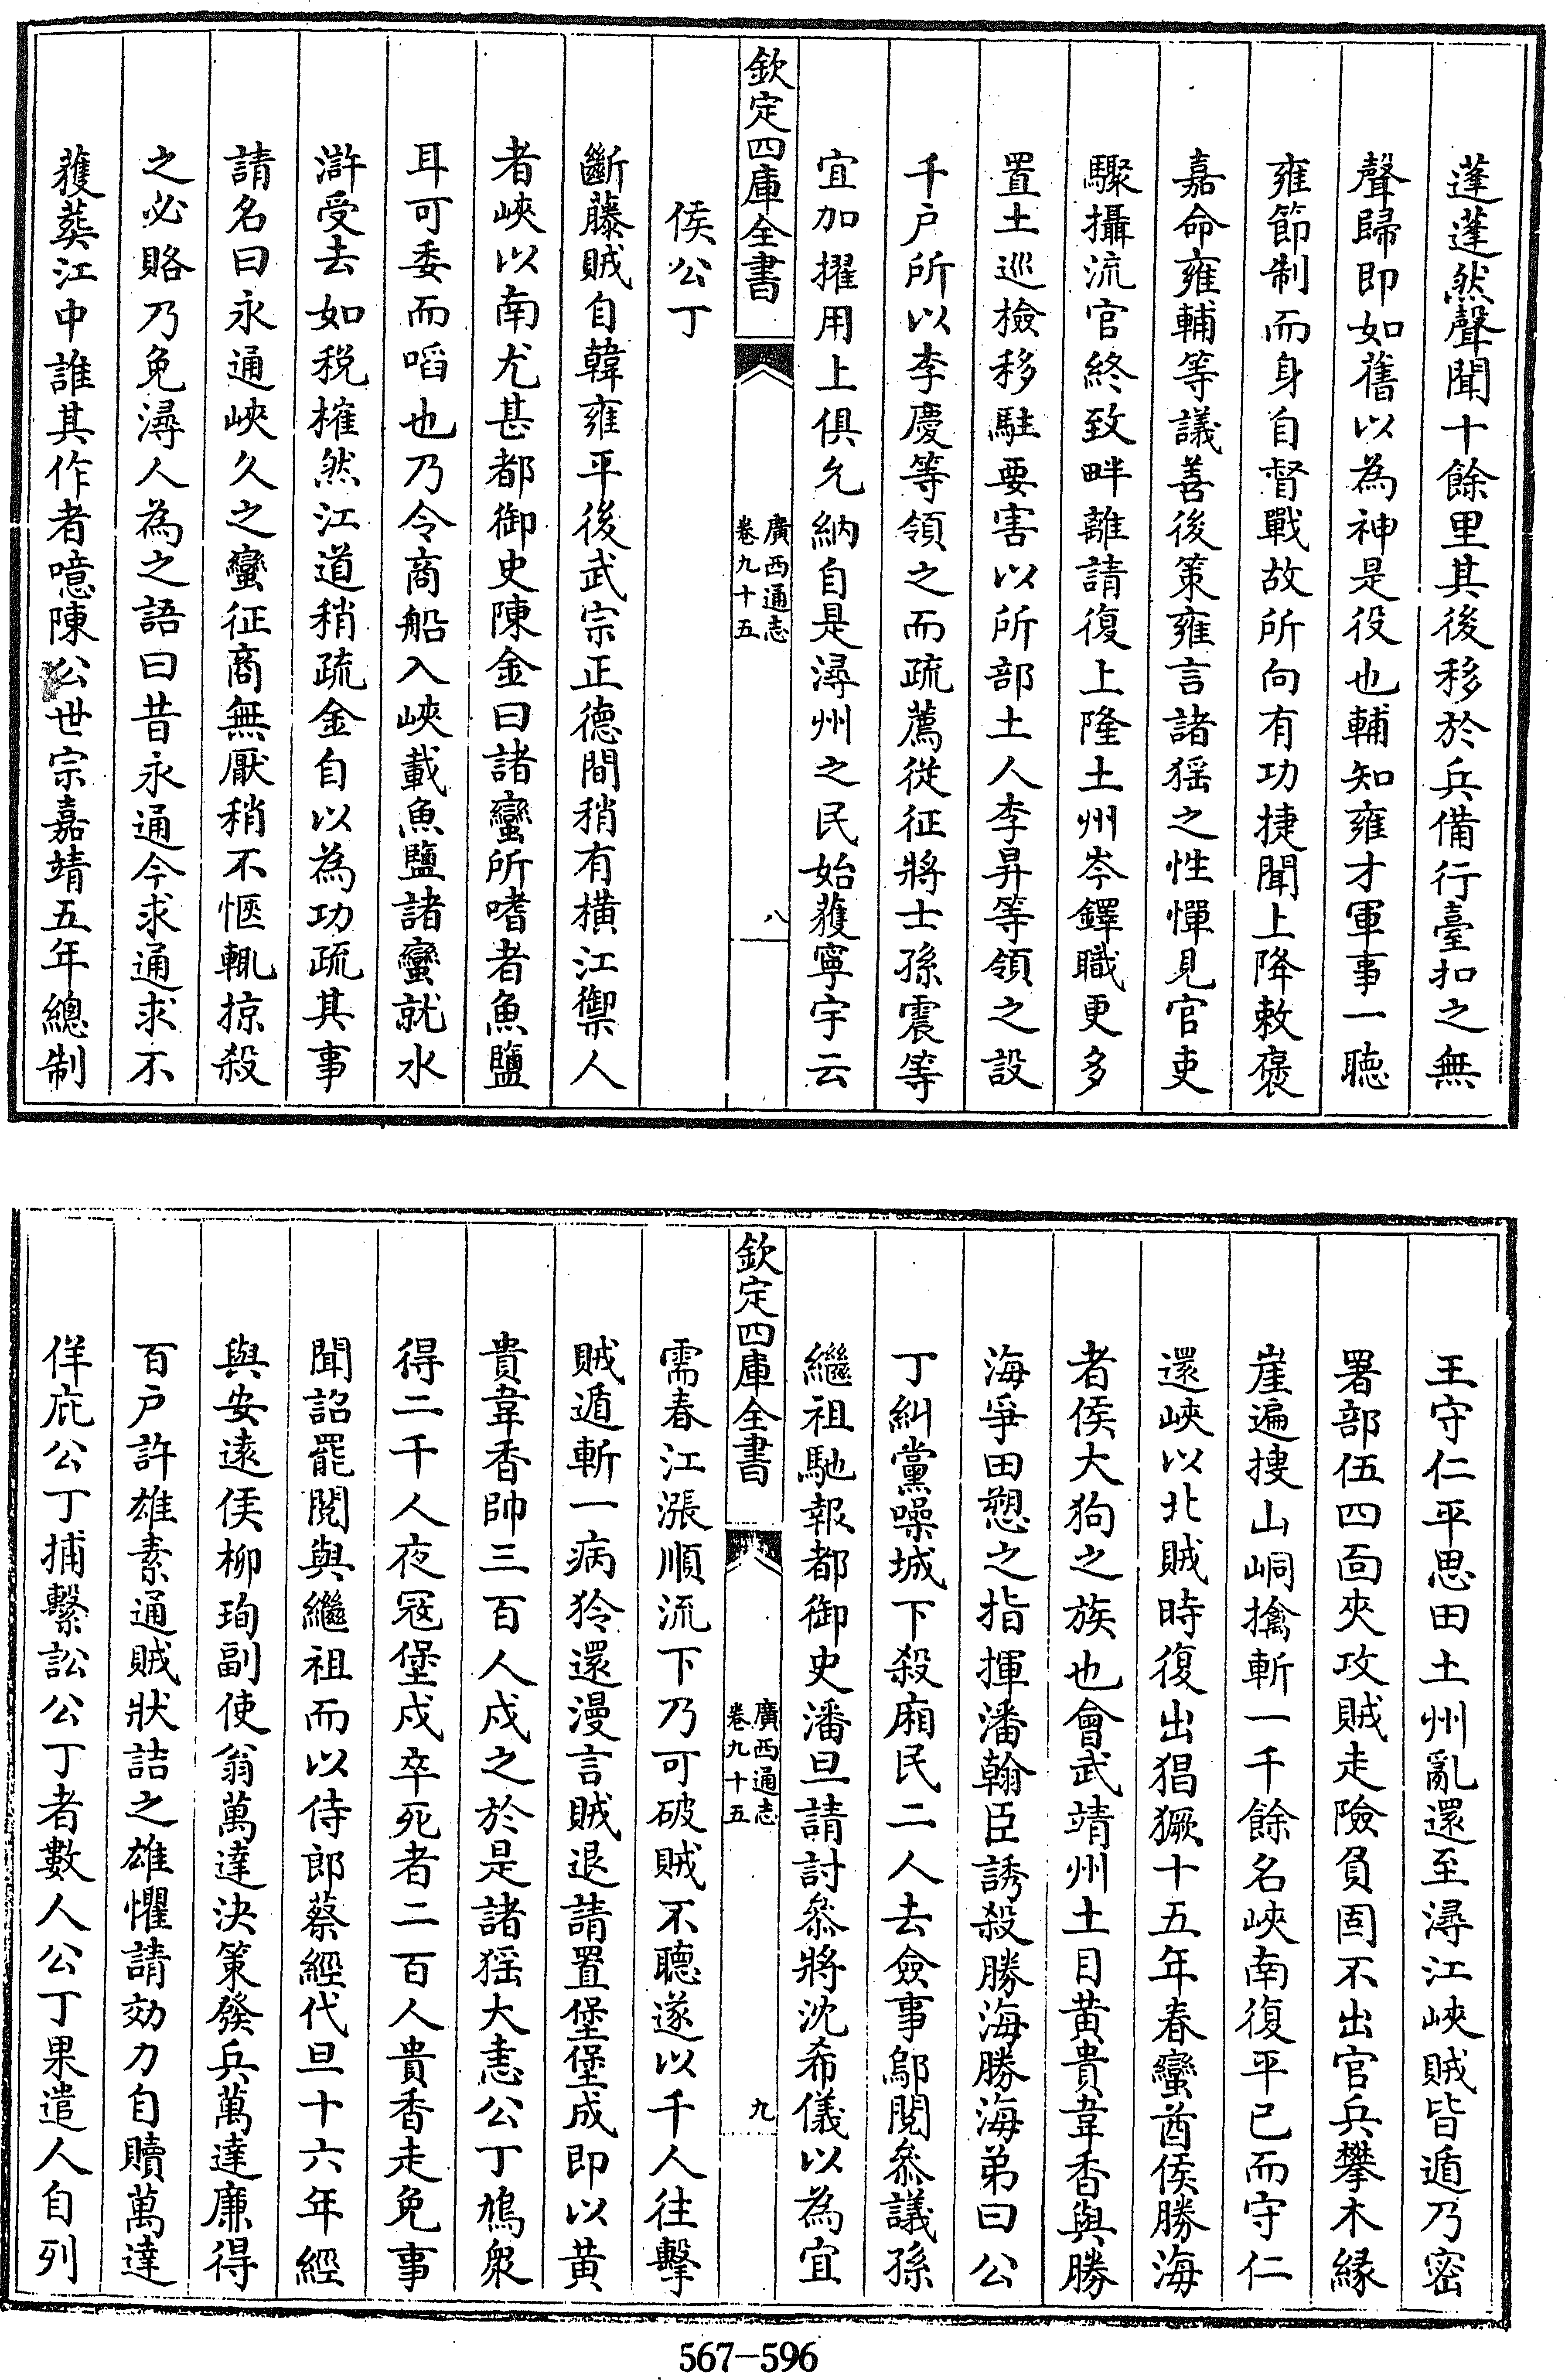 蓬蓬然聲聞十餘里其後移於兵備行臺扣之無
聲歸即如舊以為神是役也輔知雍才軍事一聽
雍節制而身自督戰故所向有功捷聞上降敕褒
嘉命雍輔等議善後策雍言諸猺之性憚見官吏
驟攝流官終致畔離請復上隆土州岑鐸職更多
置土巡檢移駐要害以所部土人李昇等領之設
千戶所以李慶等領之而疏薦從征將士孫震等
宜加擢用上俱允納自是潯州之民始獲寧宇云
欽定四庫全書
廣西通志
卷九十五
八
侯公丁
斷藤賊自韓雍平後武宗正德間稍有橫江禦人
者峽以南尤甚都御史陳金曰諸蠻所嗜者魚鹽
耳可委而啗也乃令商船入峽載魚鹽諸蠻就水
滸受去如税榷然江道稍疏金自以為功疏其事
請名曰永通峽久之蠻征商無厭稍不愜輒掠殺
之必賂乃免潯人為之語曰昔永通今求通求不
獲葬江中誰其作者噫陳公世宗嘉靖五年總制
王守仁平思田土州亂還至潯江峽賊皆遁乃密
署部伍四面夾攻賊走險負固不出官兵攀木緣
崖遍搜山峒擒斬一千餘名峽南復平已而守仁
還峽以北賊時復出猖獗十五年春蠻酋侯勝海
者侯大狗之族也會武靖州土目黃貴韋香與勝
海爭田愬之指揮潘翰臣誘殺勝海勝海弟曰公
丁糾黨噪城下殺廂民二人去僉事鄔閱叅議孫
繼祖馳報都御史潘旦請討叅將沈希儀以為宜
欽定四庫全書
廣西通志
卷九十五
九
需春江漲順流下乃可破賊不聽遂以千人往擊
賊遁斬一病狑還漫言賊退請置堡堡成即以黃
貴韋香帥三百人戍之於是諸猺大恚公丁鳩衆
得二千人夜冦堡戍卒死者二百人貴香走免事
聞詔罷閱與繼祖而以侍郎蔡經代旦十六年經
與安遠侯柳珣副使翁萬達決策發兵萬達廉得
百戶許雄素通賊狀詰之雄懼請効力自贖萬達
佯庇公丁捕繫訟公丁者數人公丁果遣人自列
567—596